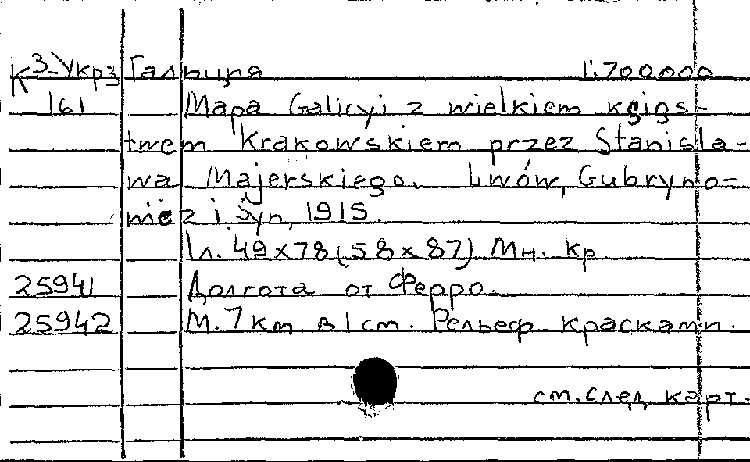 К3-Укр3 Галиция 1:700.000
161 Mapa Galicyi z wielkiem księs-
twem Krakowskiem przez Stanisła-
wa Majerskiego. Lwów, Gubryno-
wicz i Syn, 1915.
1л. 49×78 (58×87) Мн. кр.
25941 Долгота от Ферро.
25942 М. 7 км в 1 ст. Рельеф красками.
см. след карт.